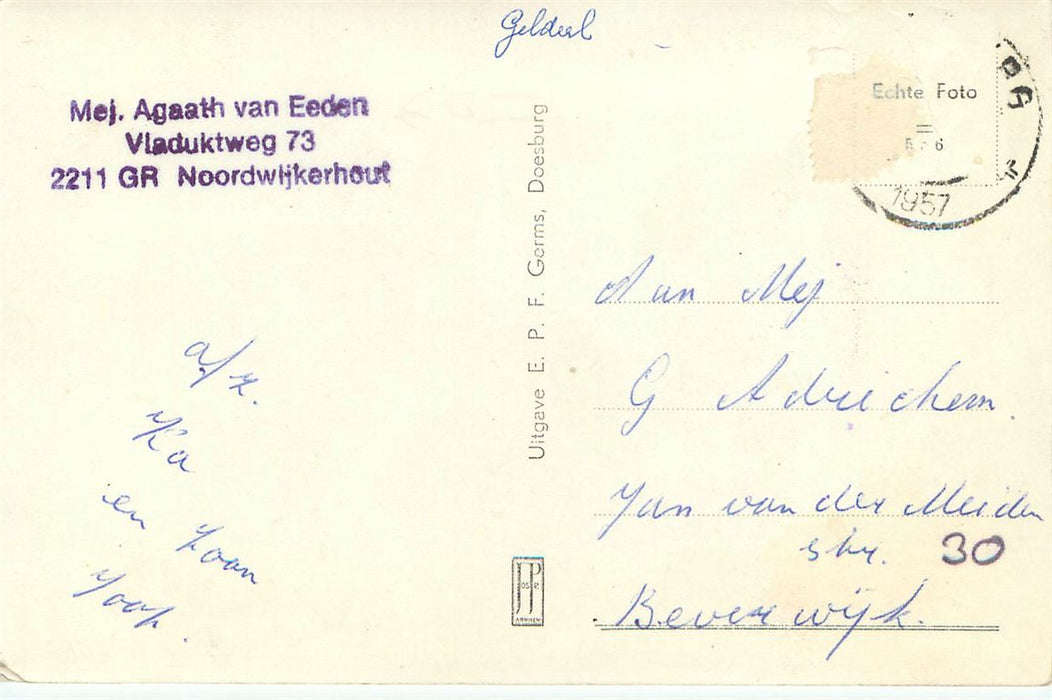 Mej. Agaath van Eeden
Viaduktweg 73
2211 GR Noordwijkerhout
a/z.
Ka
en zoon
Joop.
Uitgave E. P. F. Germs, Doesburg
JP
JOSPE
ARNHEM
Echte Foto
1957
Aan Mej
G Adrichem.
Jan van der Meiden
str. 30
Beverwijk.